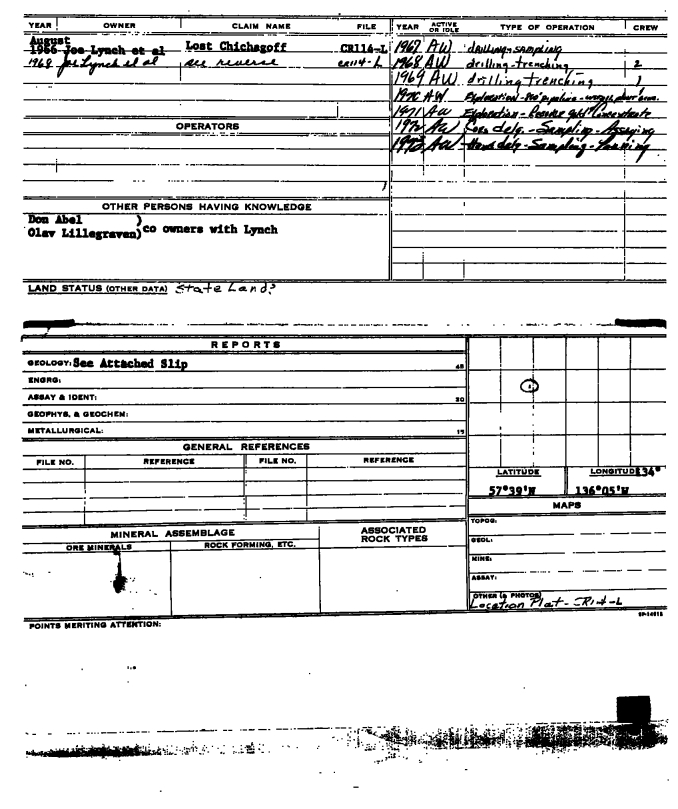 YEAR OWNER CLAIM NAME FILE YEAR ACTIVE OR IDLE TYPE OF OPERATION CREW
August
1966 Joe Lynch et al Lost Chichagoff CR114-L 1967 AW drilling-sampling
1968 Joe Lynch et al see reverse CR114-L 1968 AW drilling-trenching 2
1969 AW drilling trenching 1
1970 AW Exploration -
1971 AW Exploration - gold concentrate
OPERATORS 1972 AW - Sampling - Assaying
1973 AW Hand - Sampling - Panning
OTHER PERSONS HAVING KNOWLEDGE
Don Abel )
Olav Lillegraven) co owners with Lynch
LAND STATUS (OTHER DATA) State Land?
REPORTS
GEOLOGY: See Attached Slip
ENGRG:
ASSAY & IDENT:
GEOPHYS. & GEOCHEM:
METALLURGICAL:
GENERAL REFERENCES
FILE NO. REFERENCE FILE NO. REFERENCE
LATITUDE LONGITUDE 134°
57°39'N 136°05'W
MAPS
TOPOG:
MINERAL ASSEMBLAGE ASSOCIATED ROCK TYPES
ORE MINERALS ROCK FORMING, ETC.
GEOL:
MINE:
ASSAY:
OTHER (& PHOTOS)
Location Plat -
POINTS MERITING ATTENTION: